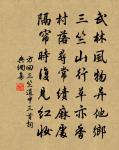 武林風物异他鄉
三竺山行草亦香
村落尋常績麻處
隔帘時復見紅妝
方回三竺道中三首詞
典網集